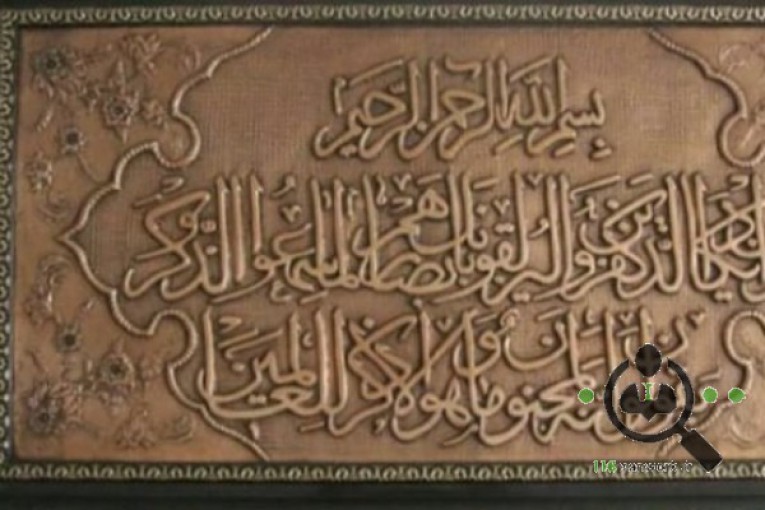 بسم الله الرحمن الرحيم
وان يكاد الذين كفروا ليزلقونك بابصارهم لما سمعوا الذكر و
يقولون انه لمجنون وما هو الا ذكر للعالمين